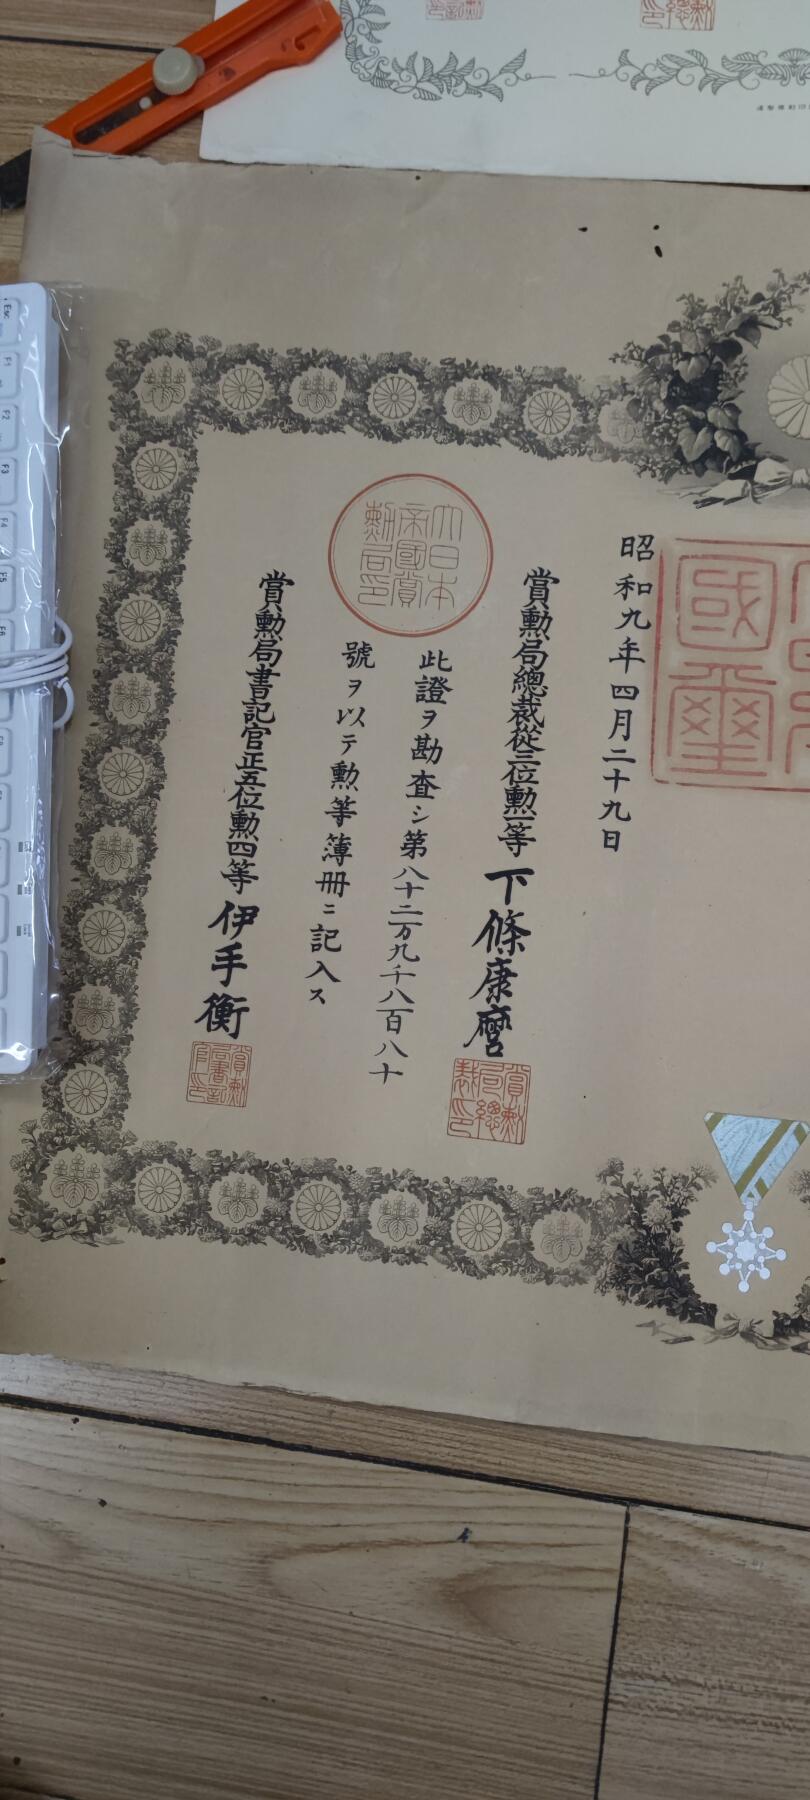 昭和九年四月二十九日
國璽
賞勲局總裁從三位勲一等 下條康麿
賞勲局總裁印
大日本帝國賞勲局印
此證ヲ勘査シ第八十二万九千八百八十
號ヲ以テ勲等簿冊ニ記入ス
賞勲局書記官正五位勲四等 伊手衡
賞勲局書記官印
Esc
F1
F2
F3
F4
F5
F6